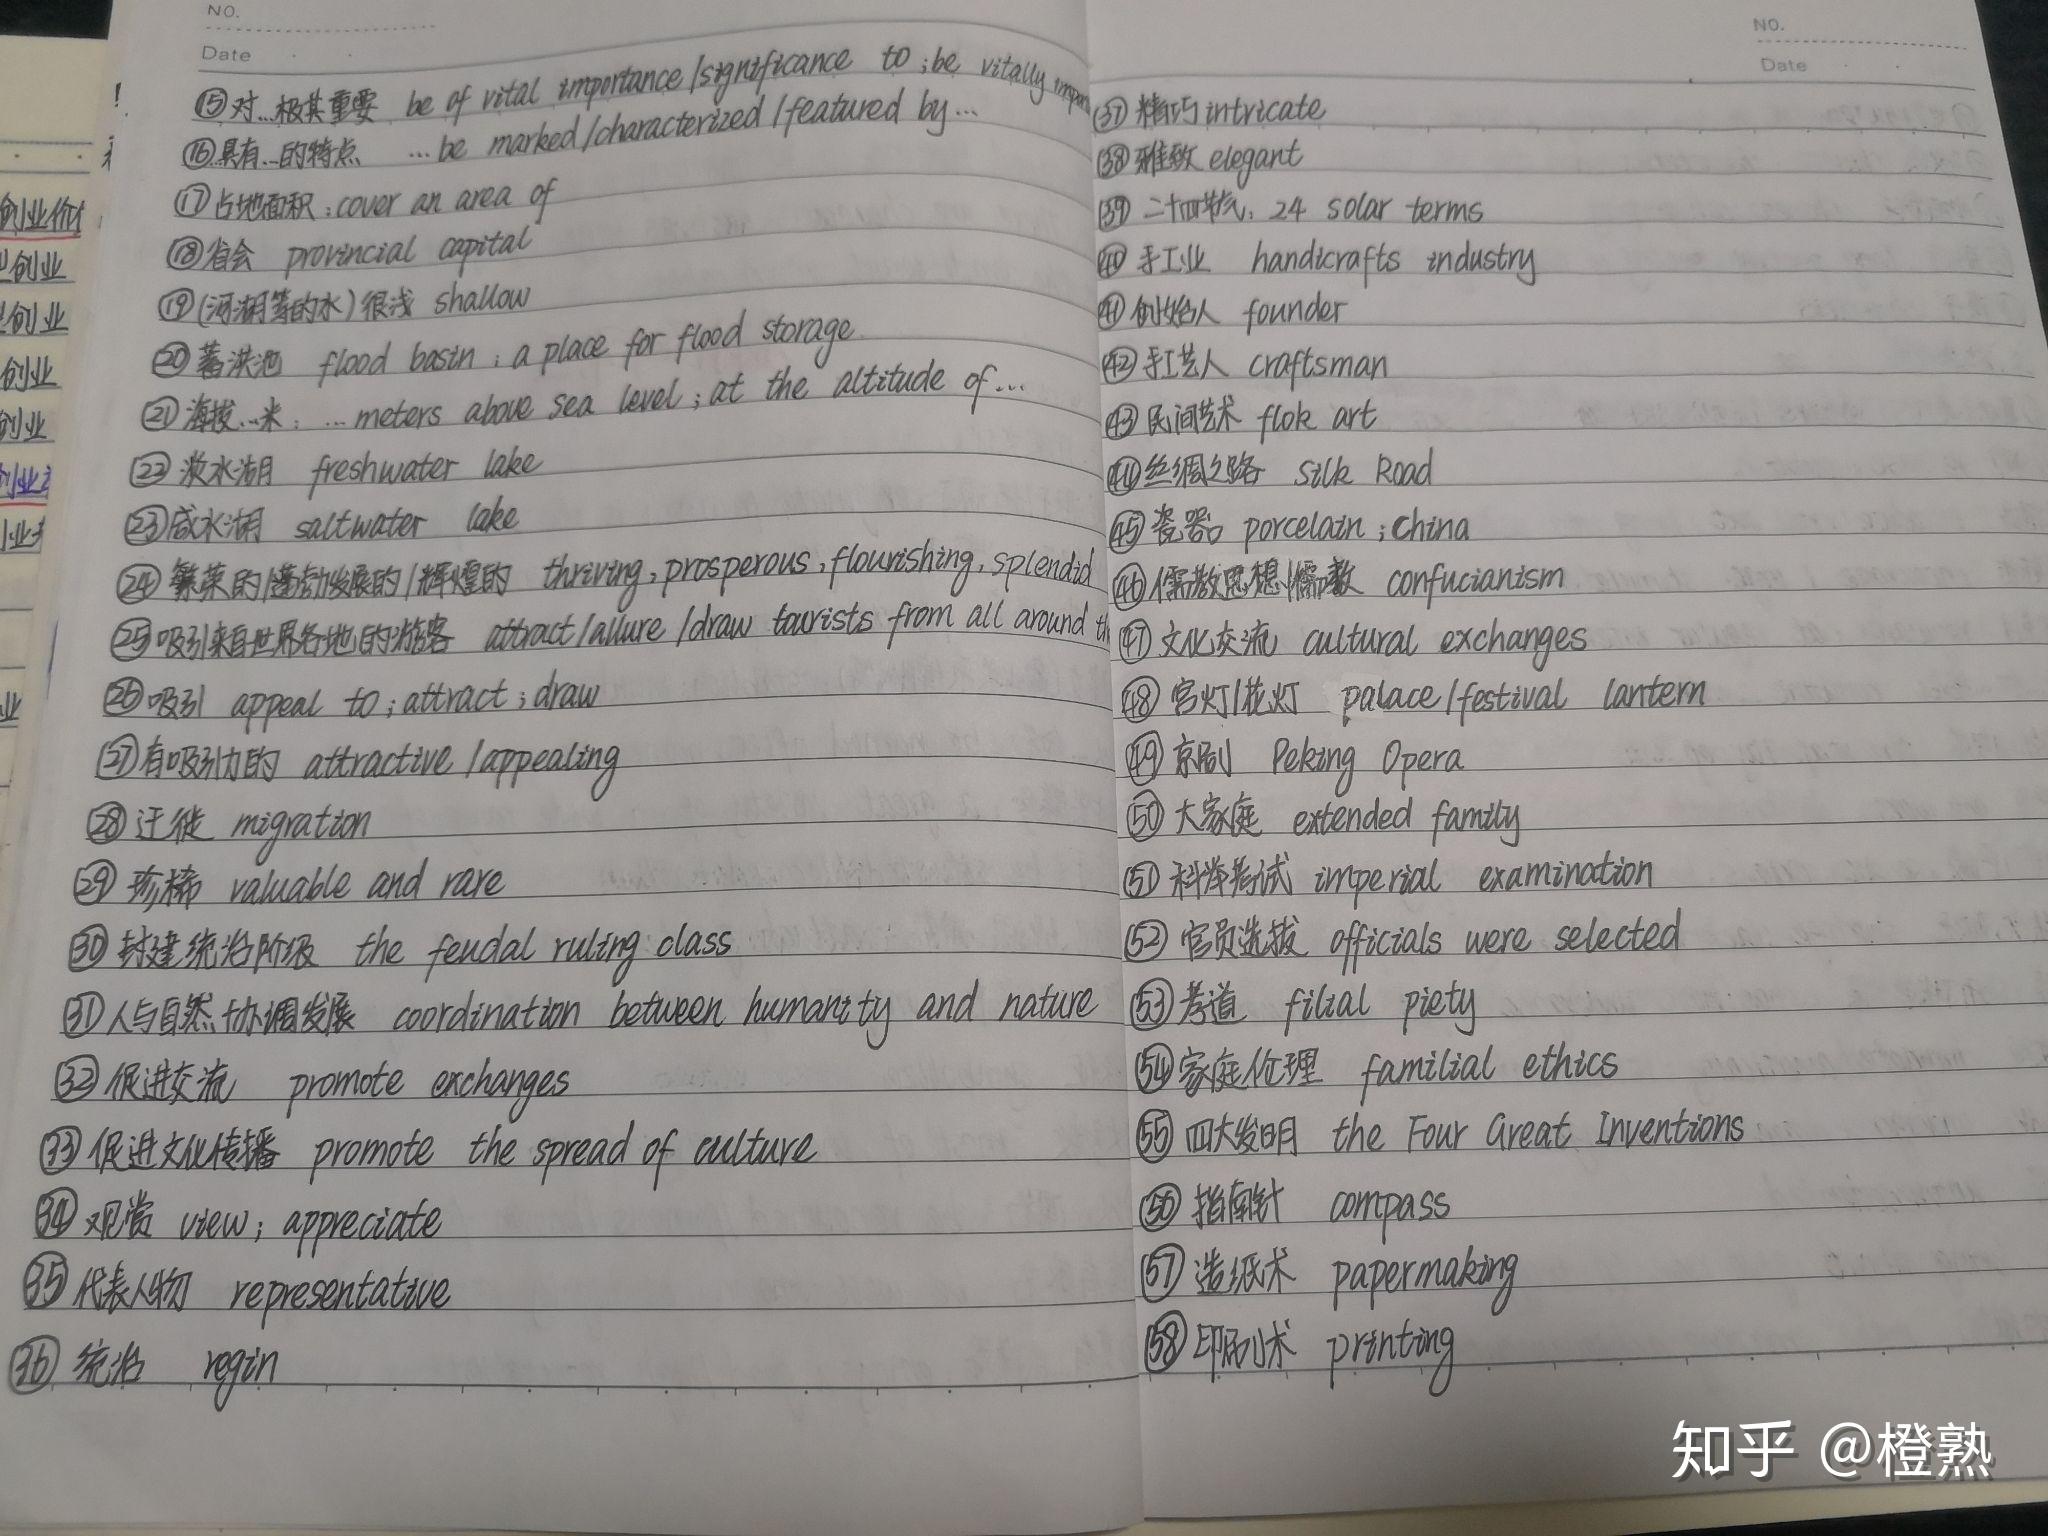 NO.
Date
⑮对…极其重要 be of vital importance/significance to ; be vitally
⑯具有…的特点 …be marked/characterized/featured by…
⑰占地面积：cover an area of
⑱省会 provincial capital
⑲(河湖等的水)很浅 shallow
⑳蓄洪池 flood basin ; a place for flood storage
㉑海拔…米：…meters above sea level ; at the altitude of…
㉒淡水湖 freshwater lake
㉓咸水湖 saltwater lake
㉔繁荣的/蓬勃发展的/辉煌的 thriving, prosperous, flourishing, splendid
㉕吸引来自世界各地的游客 attract/allure/draw tourists from all around
㉖吸引 appeal to ; attract ; draw
㉗有吸引力的 attractive/appealing
㉘迁徙 migration
㉙珍稀 valuable and rare
㉚封建统治阶级 the feudal ruling class
㉛人与自然协调发展 coordination between humanity and nature
㉜促进交流 promote exchanges
㉝促进文化传播 promote the spread of culture
㉞观赏 view ; appreciate
㉟代表人物 representative
㊱统治 regin
NO.
Date
㊲精巧 intricate
㊳雅致 elegant
㊴二十四节气：24 solar terms
㊵手工业 handicrafts industry
㊶创始人 founder
㊷手工艺人 craftsman
㊸民间艺术 flok art
㊹丝绸之路 Silk Road
㊺瓷器 porcelain ; china
㊻儒教思想/儒教 confucianism
㊼文化交流 cultural exchanges
㊽宫灯/花灯 palace/festival lantern
㊾京剧 Peking Opera
㊿大家庭 extended family
51 科举考试 imperial examination
52 官员选拔 officials were selected
53 孝道 filial piety
54 家庭伦理 familial ethics
55 四大发明 the Four Great Inventions
56 指南针 compass
57 造纸术 papermaking
58 印刷术 printing
创业价
创业
创业
创业
创业
创业
知乎 @橙熟